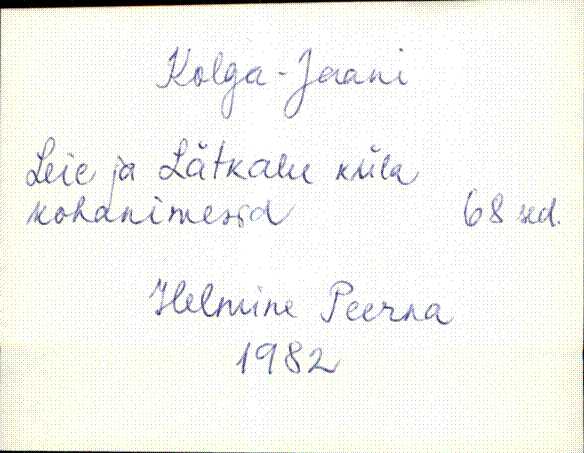 Kolga-Jaani
Leie ja Lätkalu küla
kohanimesid 68 sed.
Helmine Peerna
1982